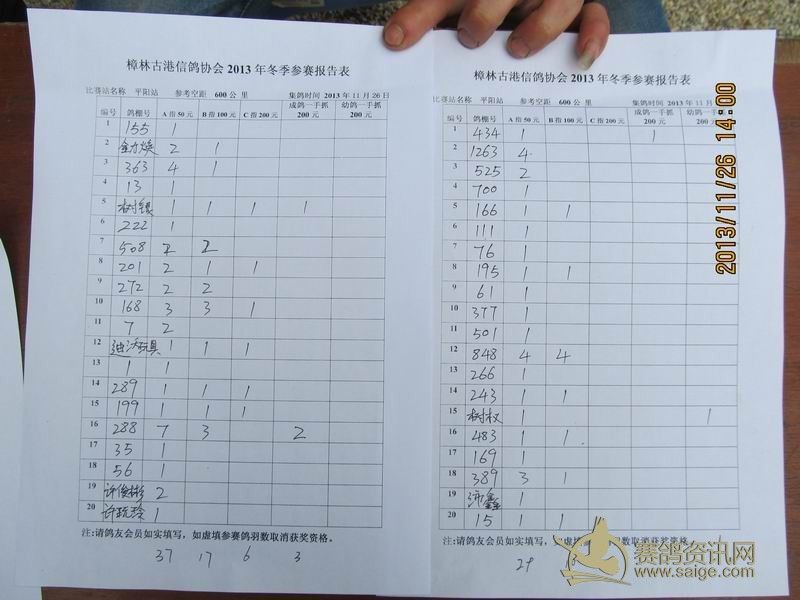 樟林古港信鸽协会 2013 年冬季参赛报告表
比赛站名称 平阳站 参考空距 600 公里 集鸽时间 2013 年 11 月 26 日
编号 鸽棚号 A 指 50 元 B 指 100 元 C 指 200 元 成鸽一手抓 200 元 幼鸽一手抓 200 元
1 155 1
2 2 1
3 363 4 1
4 13 1
5 树银 1 1 1 1
6 222 1
7 508 2 2
8 201 2 1 1
9 272 2 2
10 168 3 3 1
11 7 2
12 玩具 1 1 1
13 1 1
14 289 1 1 1
15 199 1 1 1
16 288 7 3 2
17 35 1
18 56 1
19 许俊彬 2
20 许玩玲 1
注:请鸽友会员如实填写，如虚填参赛鸽羽数取消获奖资格。
37 17 6 3
樟林古港信鸽协会 2013 年冬季参赛报告表
比赛站名称 平阳站 参考空距 600 公里 集鸽时间 2013 年 11 月
编号 鸽棚号 A 指 50 元 B 指 100 元 C 指 200 元 成鸽一手抓 200 元 幼鸽一手抓 200 元
1 434 1 1
2 1263 4
3 525 2
4 700 1
5 166 1 1
6 111 1
7 76 1
8 195 1 1
9 61 1
10 377 1
11 501 1
12 848 4 4
13 266 1
14 243 1 1
15 树权 1 1
16 483 1 1
17 169 1
18 389 3 1
19 鑫 1
20 15 1 1 1
注:请鸽友会员如实填写，如虚填参赛鸽羽数取消获奖资格。
29
2013/11/26 14:00
赛鸽资讯网
www.saige.com